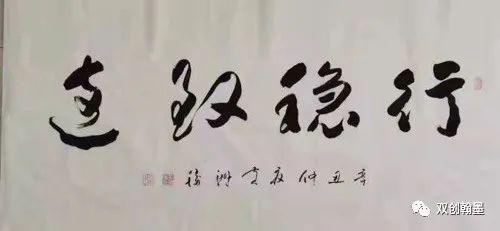 行稳致远
辛丑仲夏
双创翰墨